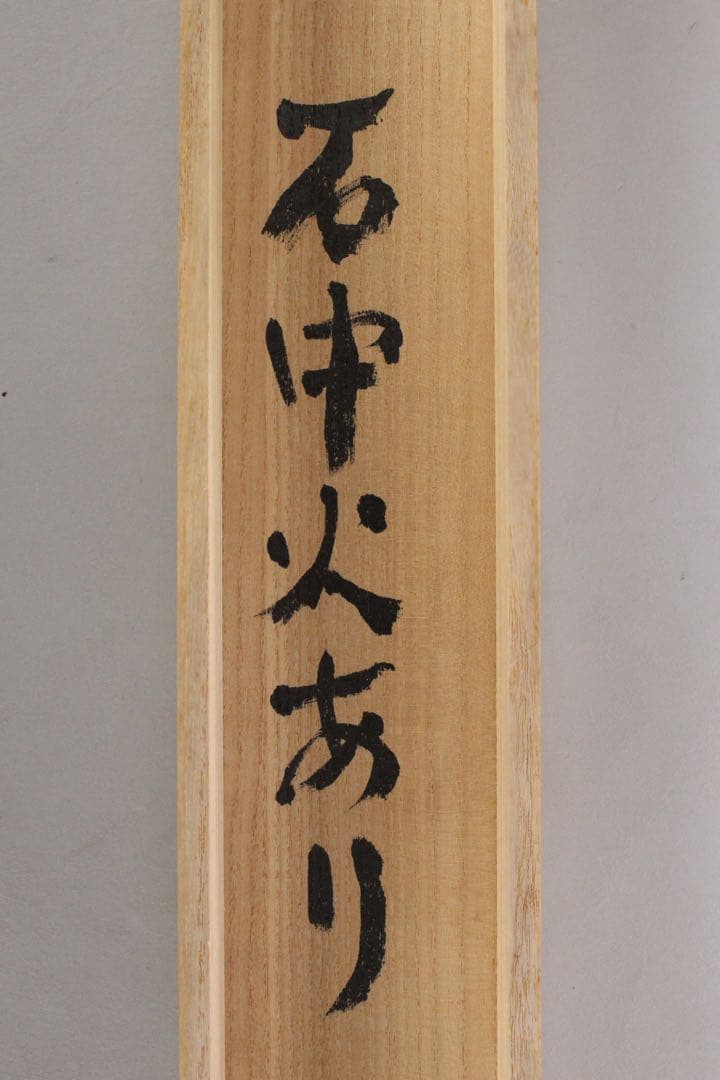 石中火あり